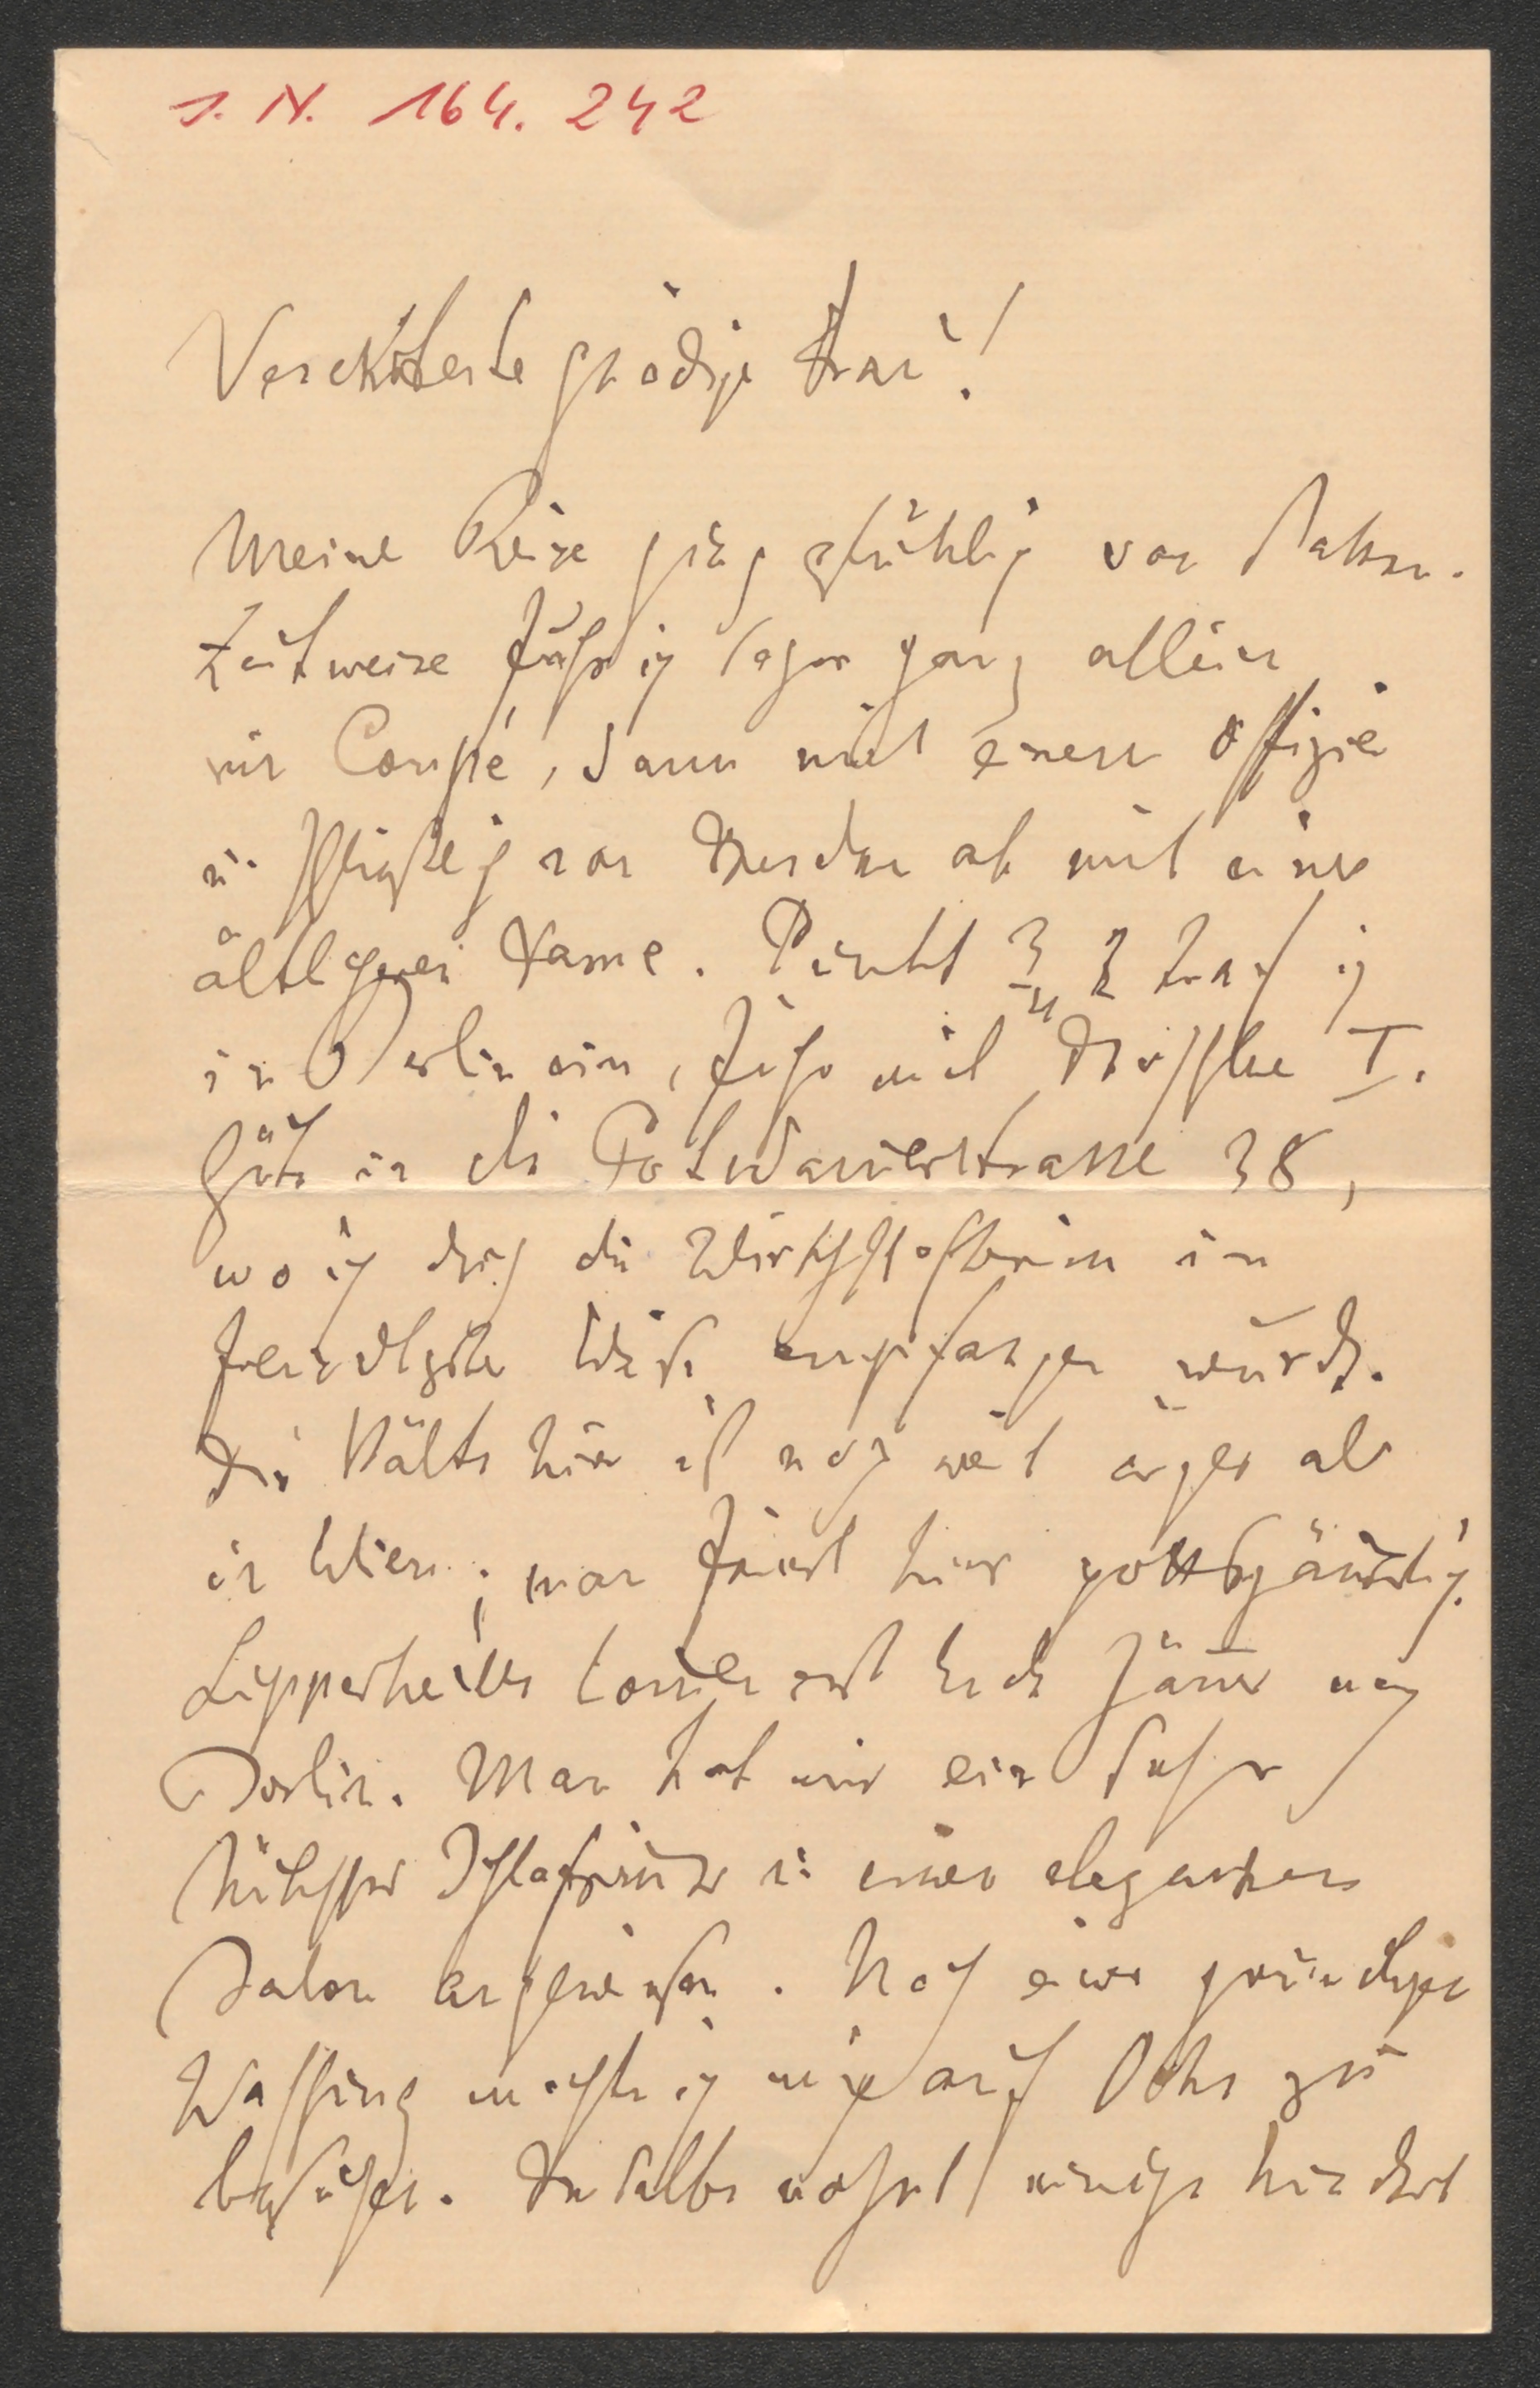 I. N. 164. 242
Verehrteste gnädige Frau!
Meine Reise ging glücklich von statten.
Zeitweise fuhr ich sogar ganz allein
im Coupé, dann mit einem Offizier
u. schließlich von Dresden ab mit einer
ältlichen Dame. Punkt traf ich
in Berlin ein, fuhr mit Droschke I.
Güte in die Potsdamerstrasse 38,
wo ich durch die Wirthschafterin in
freundlichster Weise empfangen wurde.
Die Kälte hier ist noch weit ärger als
in Wien; man friert hier gottsjämmerlich.
Lipperheides kommen erst Ende Jänner nach
Berlin. Man hat mir ein sehr
hübsches Schlafzimmer u. einen eleganten
Salon angewiesen. Nach einer gründlichen
Waschung machte ich mich auf Ochs zu
besuchen. Derselbe wohnt einige hundert